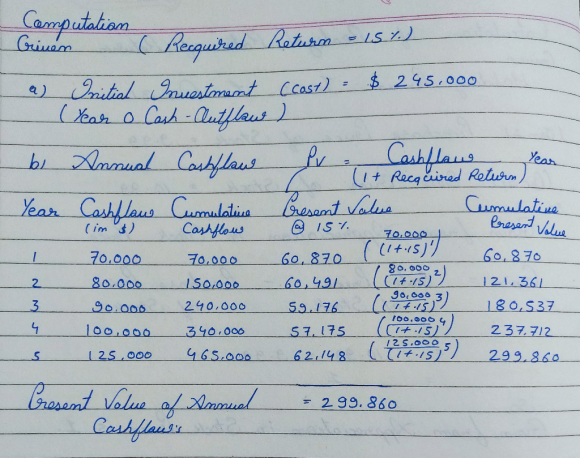 Computation
Given ( Recquired Return = 15 %.)
a) Initial Investment (cost) = $ 245.000
( Year 0 Cash-Outflow )
b) Annual Cashflow PV = Cashflow / (1 + Recquired Return) Year
Year Cashflow Cumulative Present Value Cumulative
(in $) Cashflow @ 15 %. Present Value
1 70.000 70.000 60,870 ( 70.000 / (1+.15)¹ ) 60,870
2 80.000 150,000 60,491 ( 80.000 / (1+.15)² ) 121.361
3 90.000 240.000 59.176 ( 90.000 / (1+.15)³ ) 180,537
4 100.000 340.000 57.175 ( 100.000 / (1+.15)⁴ ) 237.712
5 125.000 465.000 62,148 ( 125.000 / (1+.15)⁵ ) 299.860
Present Value of Annual = 299.860
Cashflow's